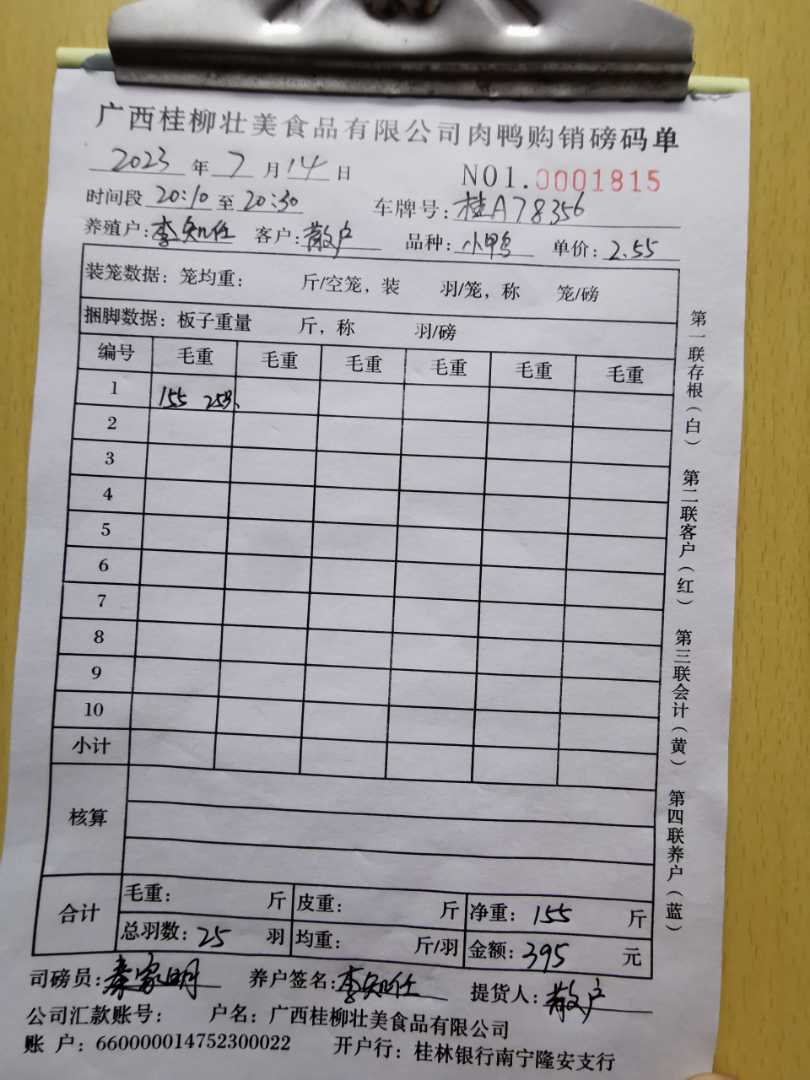 广西桂柳壮美食品有限公司肉鸭购销磅码单
2023 年 7 月 14 日 NO1.0001815
时间段 20:10 至 20:30 车牌号: 桂A78356
养殖户: 李知任 客户: 散户 品种: 小鸭 单价: 2.55
装笼数据: 笼均重: 斤/空笼, 装 羽/笼, 称 笼/磅
捆脚数据: 板子重量 斤, 称 羽/磅
编号 毛重 毛重 毛重 毛重 毛重 毛重
1 155 25只
2
3
4
5
6
7
8
9
10
小计
核算
合计 毛重: 斤 皮重: 斤 净重: 155 斤
总羽数: 25 羽 均重: 斤/羽 金额: 395 元
司磅员: 秦家明 养户签名: 李知任 提货人: 散户
公司汇款账号: 户名: 广西桂柳壮美食品有限公司
账 户: 660000014752300022 开户行: 桂林银行南宁隆安支行
第一联存根(白) 第二联客户(红) 第三联会计(黄) 第四联养户(蓝)